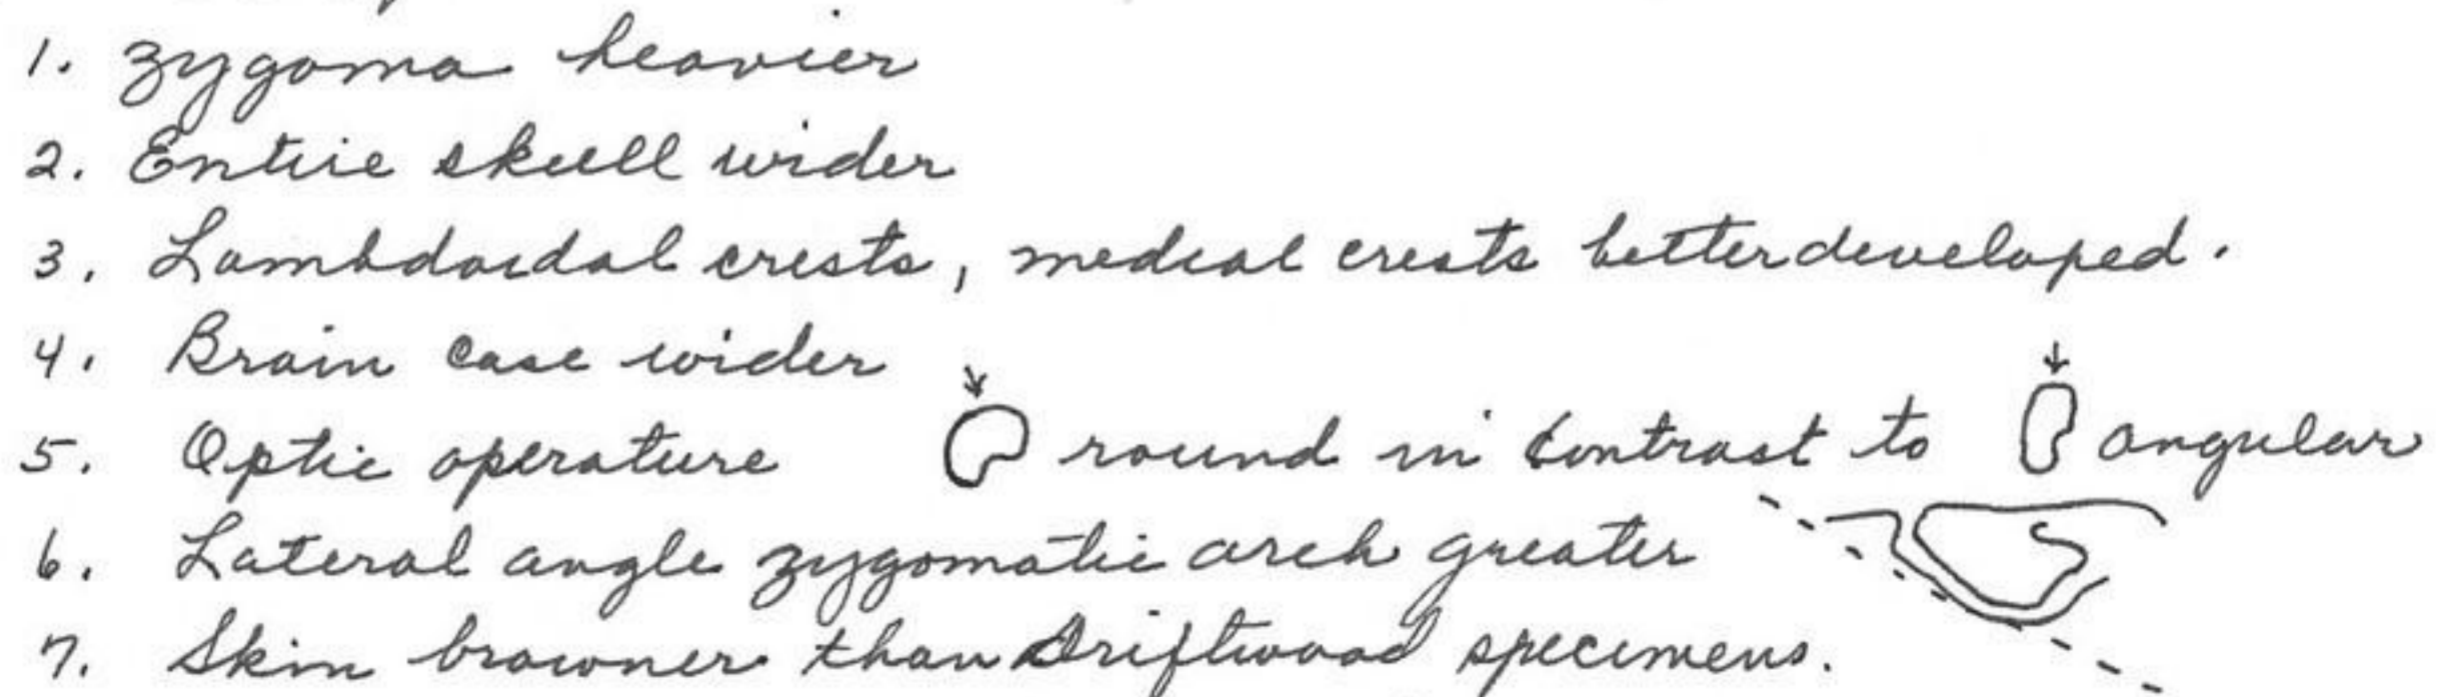 1. Zygoma heavier
2. Entire skull wider
3. Lambdoidal crests, medial crests better developed.
4. Brain case wider
5. Optic operature round in contrast to angular
6. Lateral angle zygomatic arch greater
7. Skin browner than Driftwood specimens.